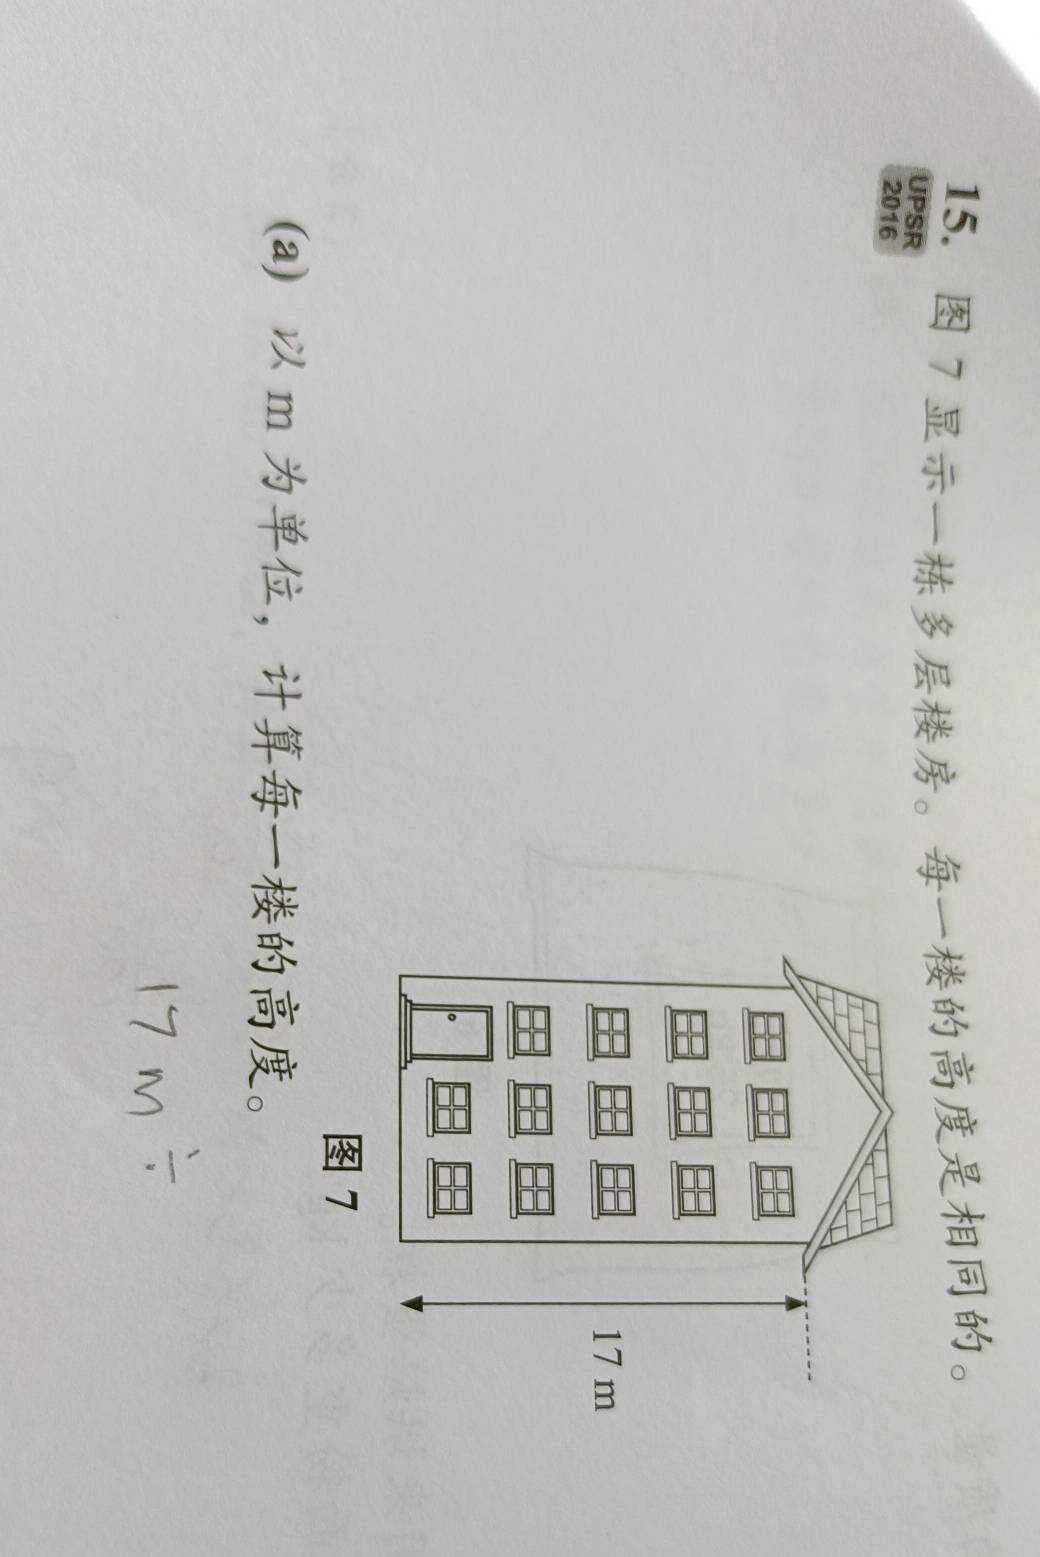 15. 图 7 显示一栋多层楼房。每一楼的高度是相同的。
UPSR
2016
17 m
图 7
(a) 以 m 为单位，计算每一楼的高度。
17 m ÷